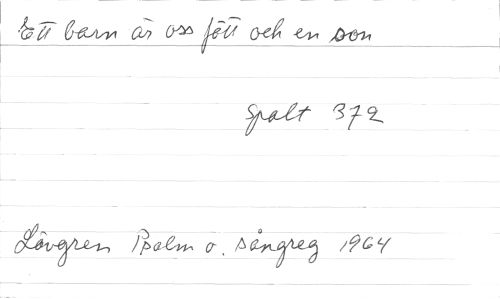 Ett barn är oss fött och en son
Spalt 372
Lövgren Psalm o. sångreg 1964